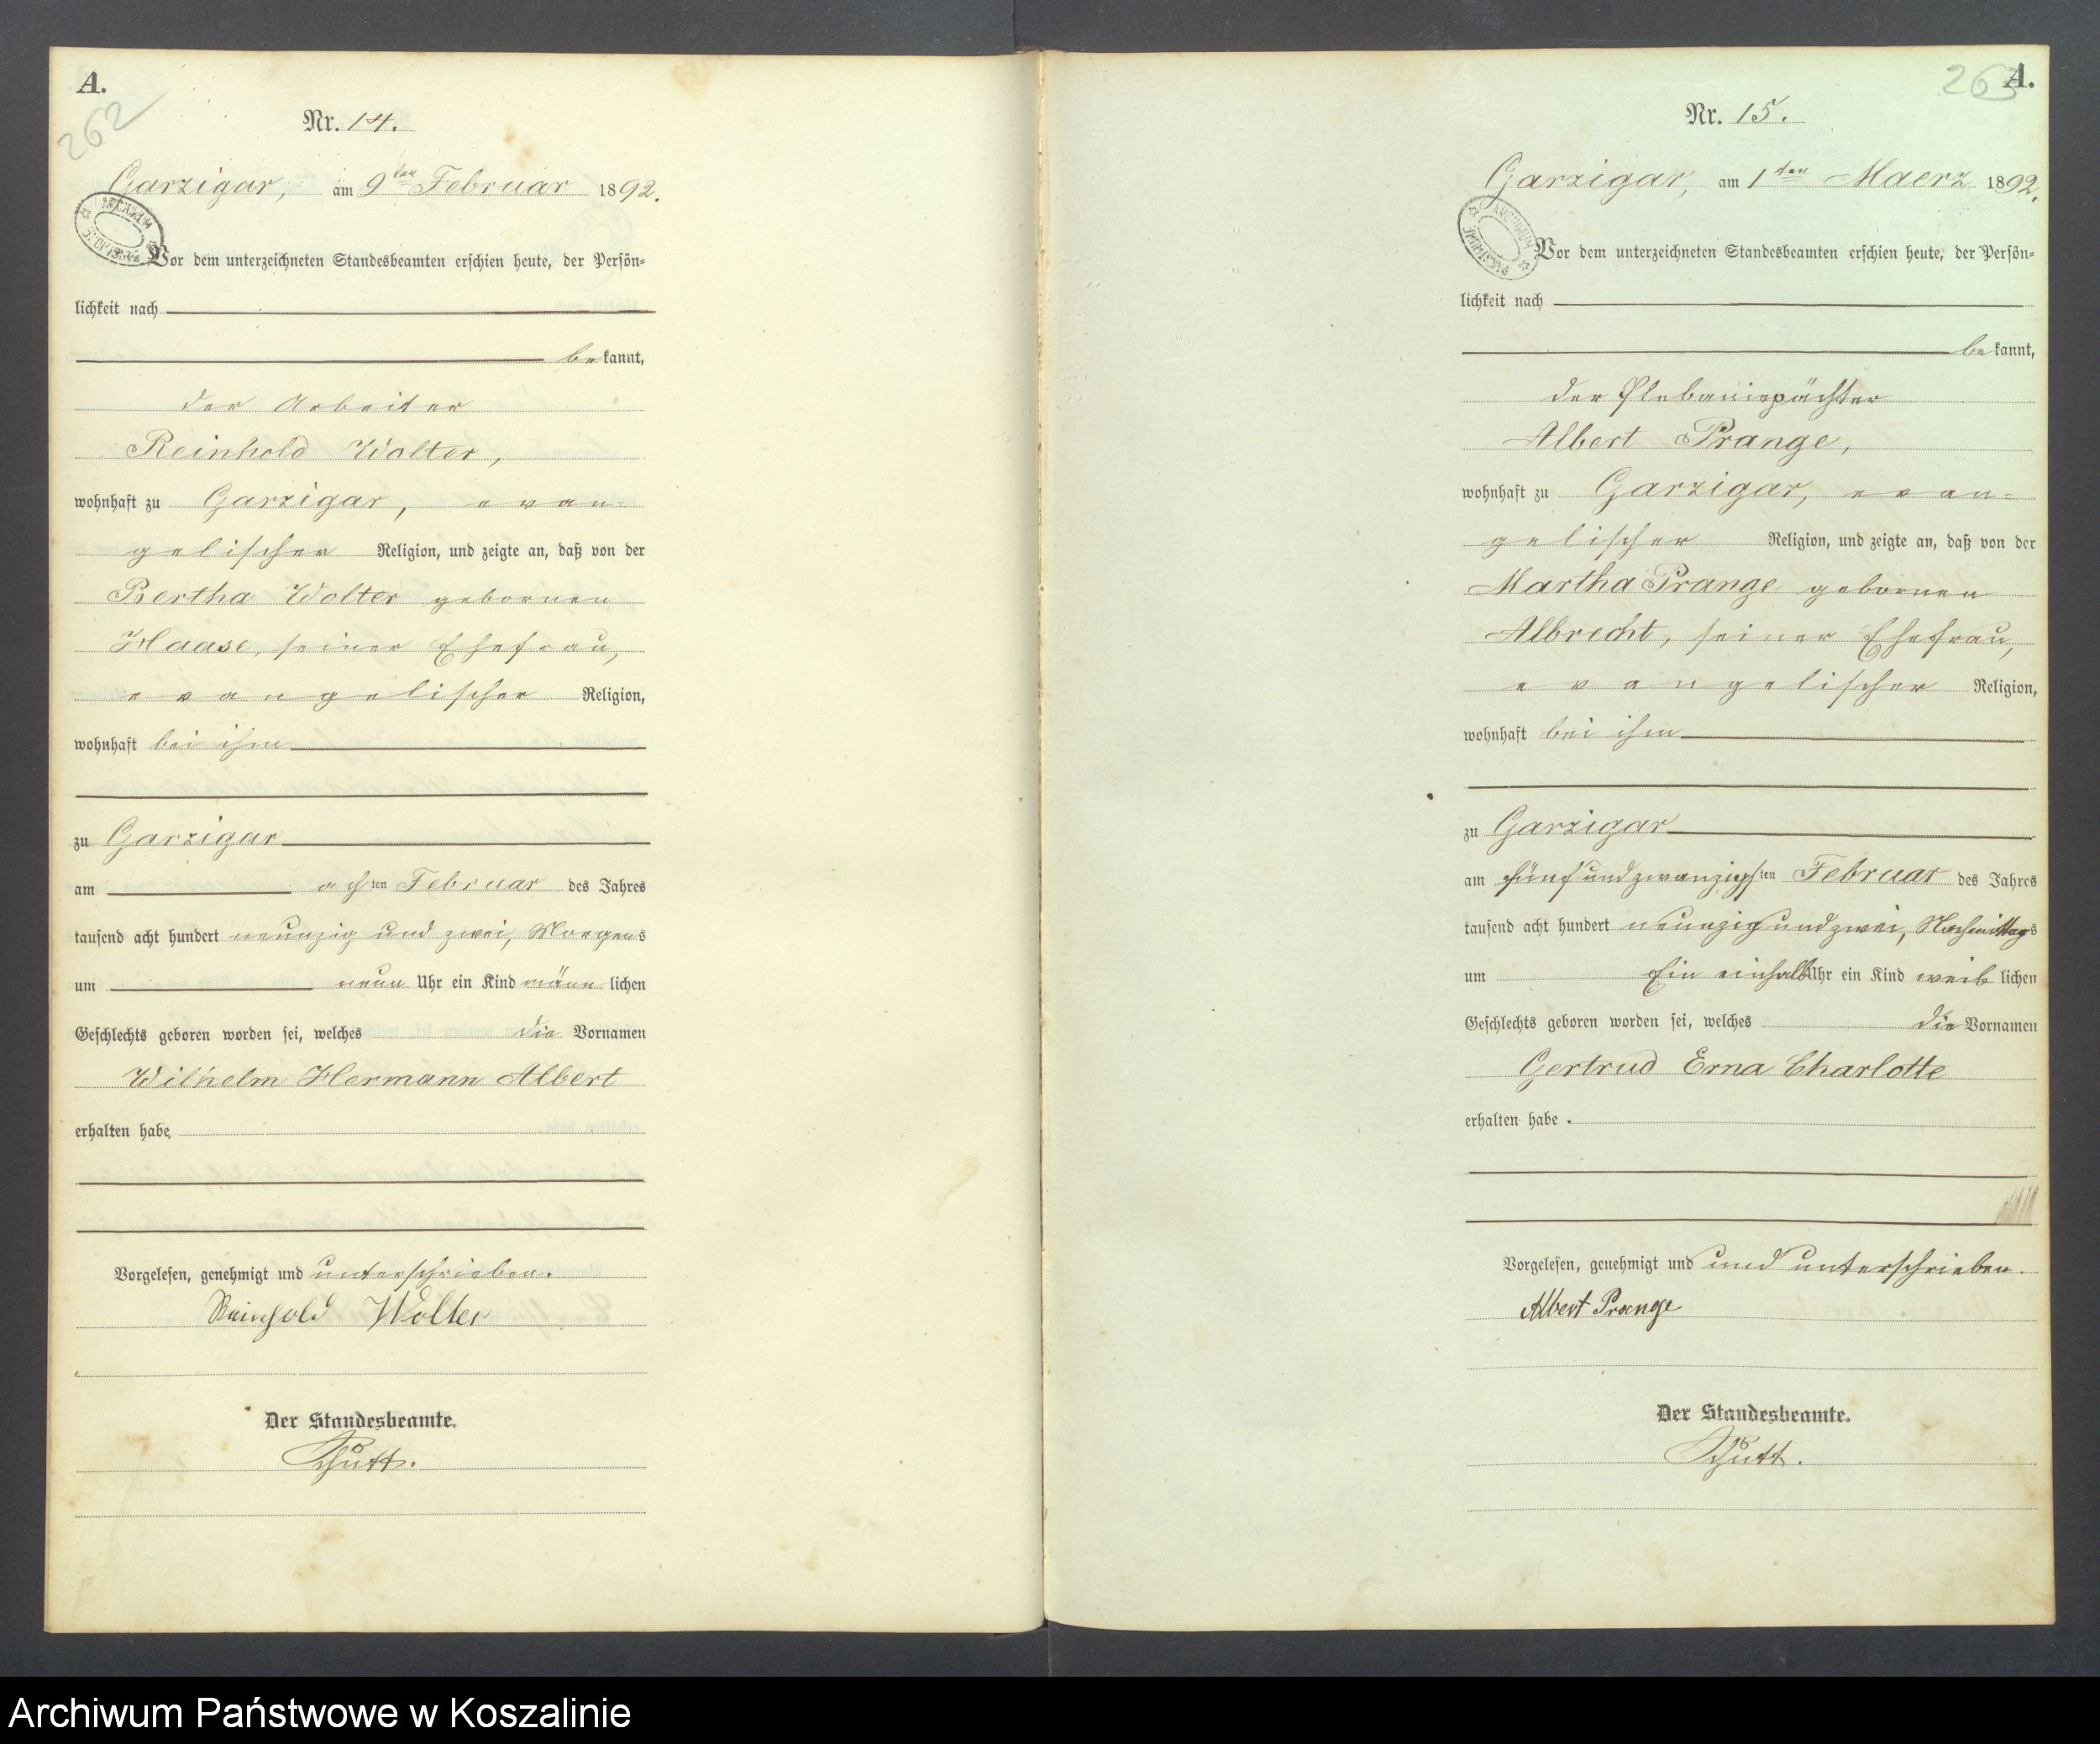 A.
262
Nr. 14.
Garzigar, am 9ten Februar 1892.
Vor dem unterzeichneten Standesbeamten erschien heute, der Persön=
lichkeit nach
bekannt,
der Arbeiter
Reinhold Wolter,
wohnhaft zu Garzigar, evan=
gelischer Religion, und zeigte an, daß von der
Bertha Wolter gebornen
Haase, seiner Ehefrau,
evangelischer Religion,
wohnhaft bei ihm
zu Garzigar
am achten Februar des Jahres
tausend acht hundert neunzig und zwei, Morgens
um neun Uhr ein Kind männlichen
Geschlechts geboren worden sei, welches die Vornamen
Wilhelm Hermann Albert
erhalten habe
Vorgelesen, genehmigt und unterschrieben.
Reinhold Wolter
Der Standesbeamte.
Schütt.
A.
263
Nr. 15.
Garzigar, am 1ten Maerz 1892.
ARCHIWUM
Vor dem unterzeichneten Standesbeamten erschien heute, der Persön=
lichkeit nach
bekannt,
der Plebaniepächter
Albert Prange,
wohnhaft zu Garzigar, evan=
gelischer Religion, und zeigte an, daß von der
Martha Prange gebornen
Albrecht, seiner Ehefrau,
evangelischer Religion,
wohnhaft bei ihm
zu Garzigar
am fünfundzwanzigsten Februar des Jahres
tausend acht hundert neunzig und zwei, Nachmittags
um Ein einhalb Uhr ein Kind weiblichen
Geschlechts geboren worden sei, welches die Vornamen
Gertrud Erna Charlotte
erhalten habe.
Vorgelesen, genehmigt und und unterschrieben.
Albert Prange
Der Standesbeamte.
Schütt.
Archiwum Państwowe w Koszalinie